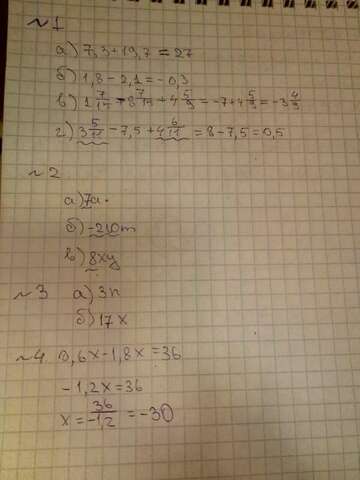 №1
а) 7,3+19,7=27
б) 1,8-2,1=-0,3
в) 1 7/15 - 8 7/15 + 4 5/9 = -7+4 5/9 = -3 4/9
г) 3 5/11 - 7,5 + 4 6/11 = 8-7,5=0,5
№2
а) 7a.
б) -210m
в) 8xy
№3 а) 3n
б) 17x
№4 0,6x-1,8x=36
-1,2x=36
x= 36/-1,2 =-30